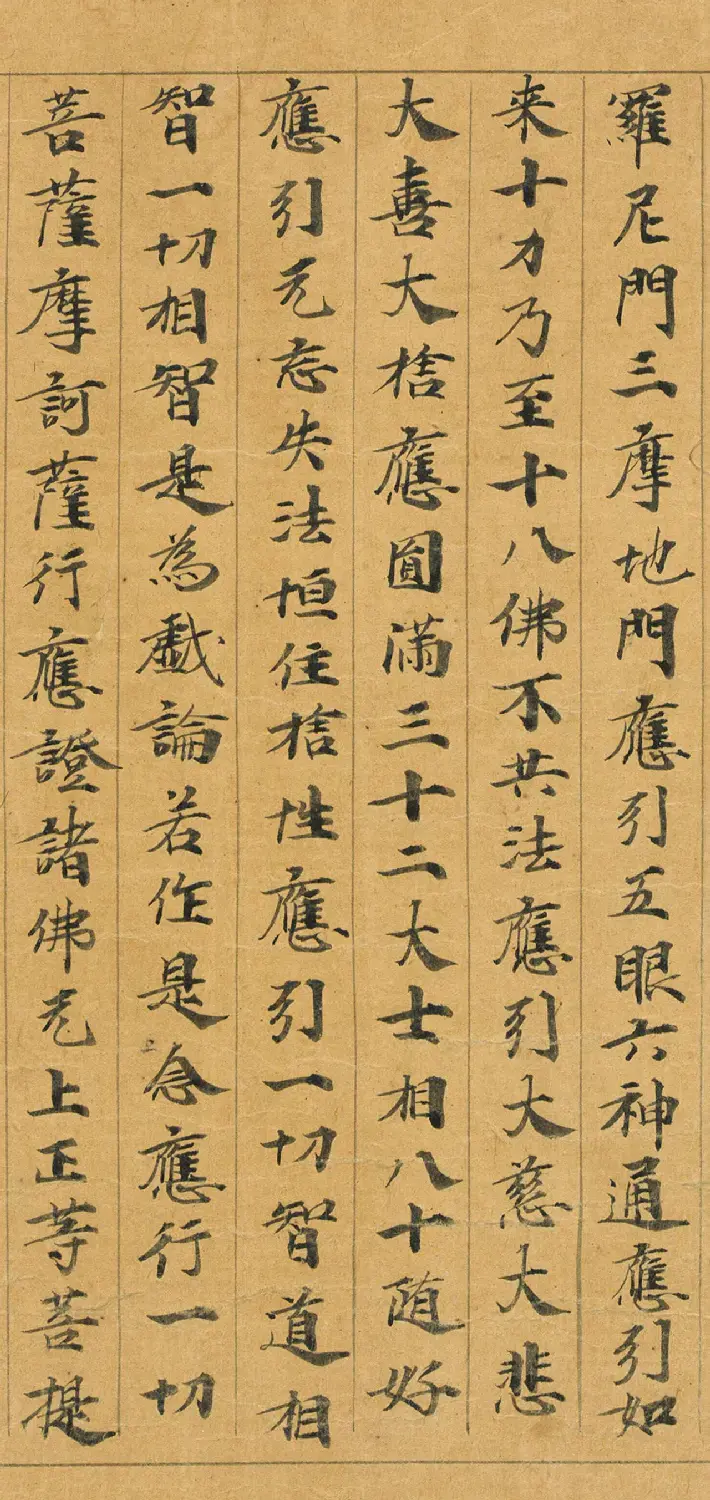 羅尼門三摩地門應引五眼六神通應引如
来十力乃至十八佛不共法應引大慈大悲
大喜大捨應圓滿三十二大士相八十随好
應引无忘失法恒住捨性應引一切智道相
智一切相智是為戱論若作是念應行一切
菩薩摩訶薩行應證諸佛无上正等菩提